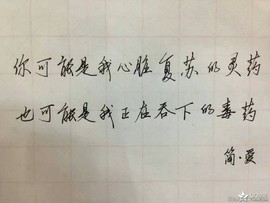 你可能是我心脏复苏的灵药
也可能是我正在吞下的毒药
简·爱